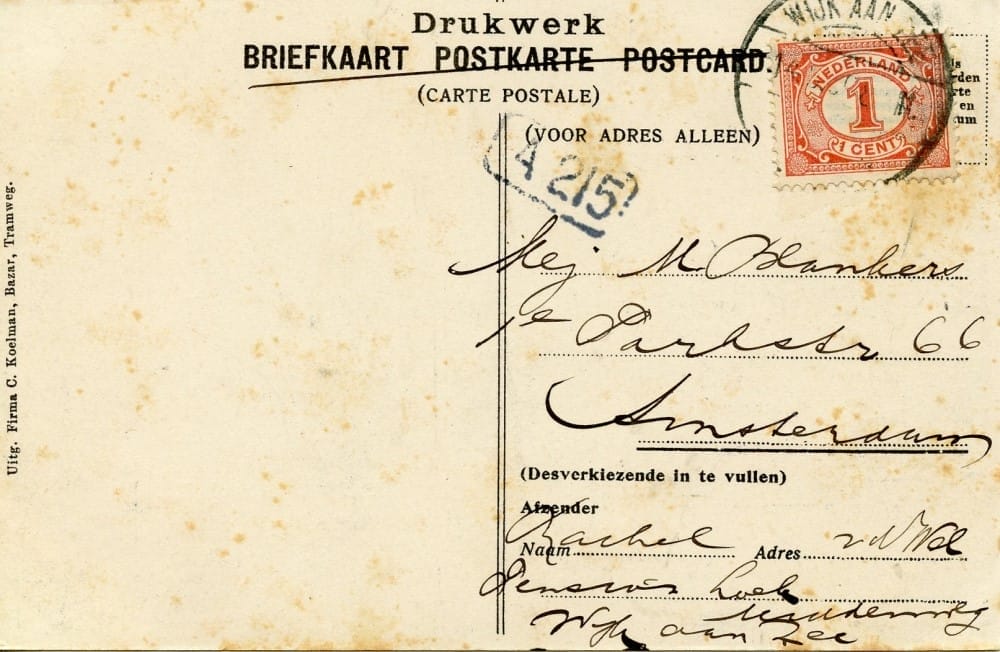 Drukwerk
BRIEFKAART POSTKARTE POSTCARD
(CARTE POSTALE)
(VOOR ADRES ALLEEN)
WIJK AAN
NEDERLAND
1
1 CENT
A 215
Mej M Blankers
1e Parkstr 66
Amsterdam
(Desverkiezende in te vullen)
Afzender
Naam Rachel Adres v d Wal
Pension Loek
Wijk aan Zee
Uitg. Firma C. Koelman, Bazar, Tramweg.